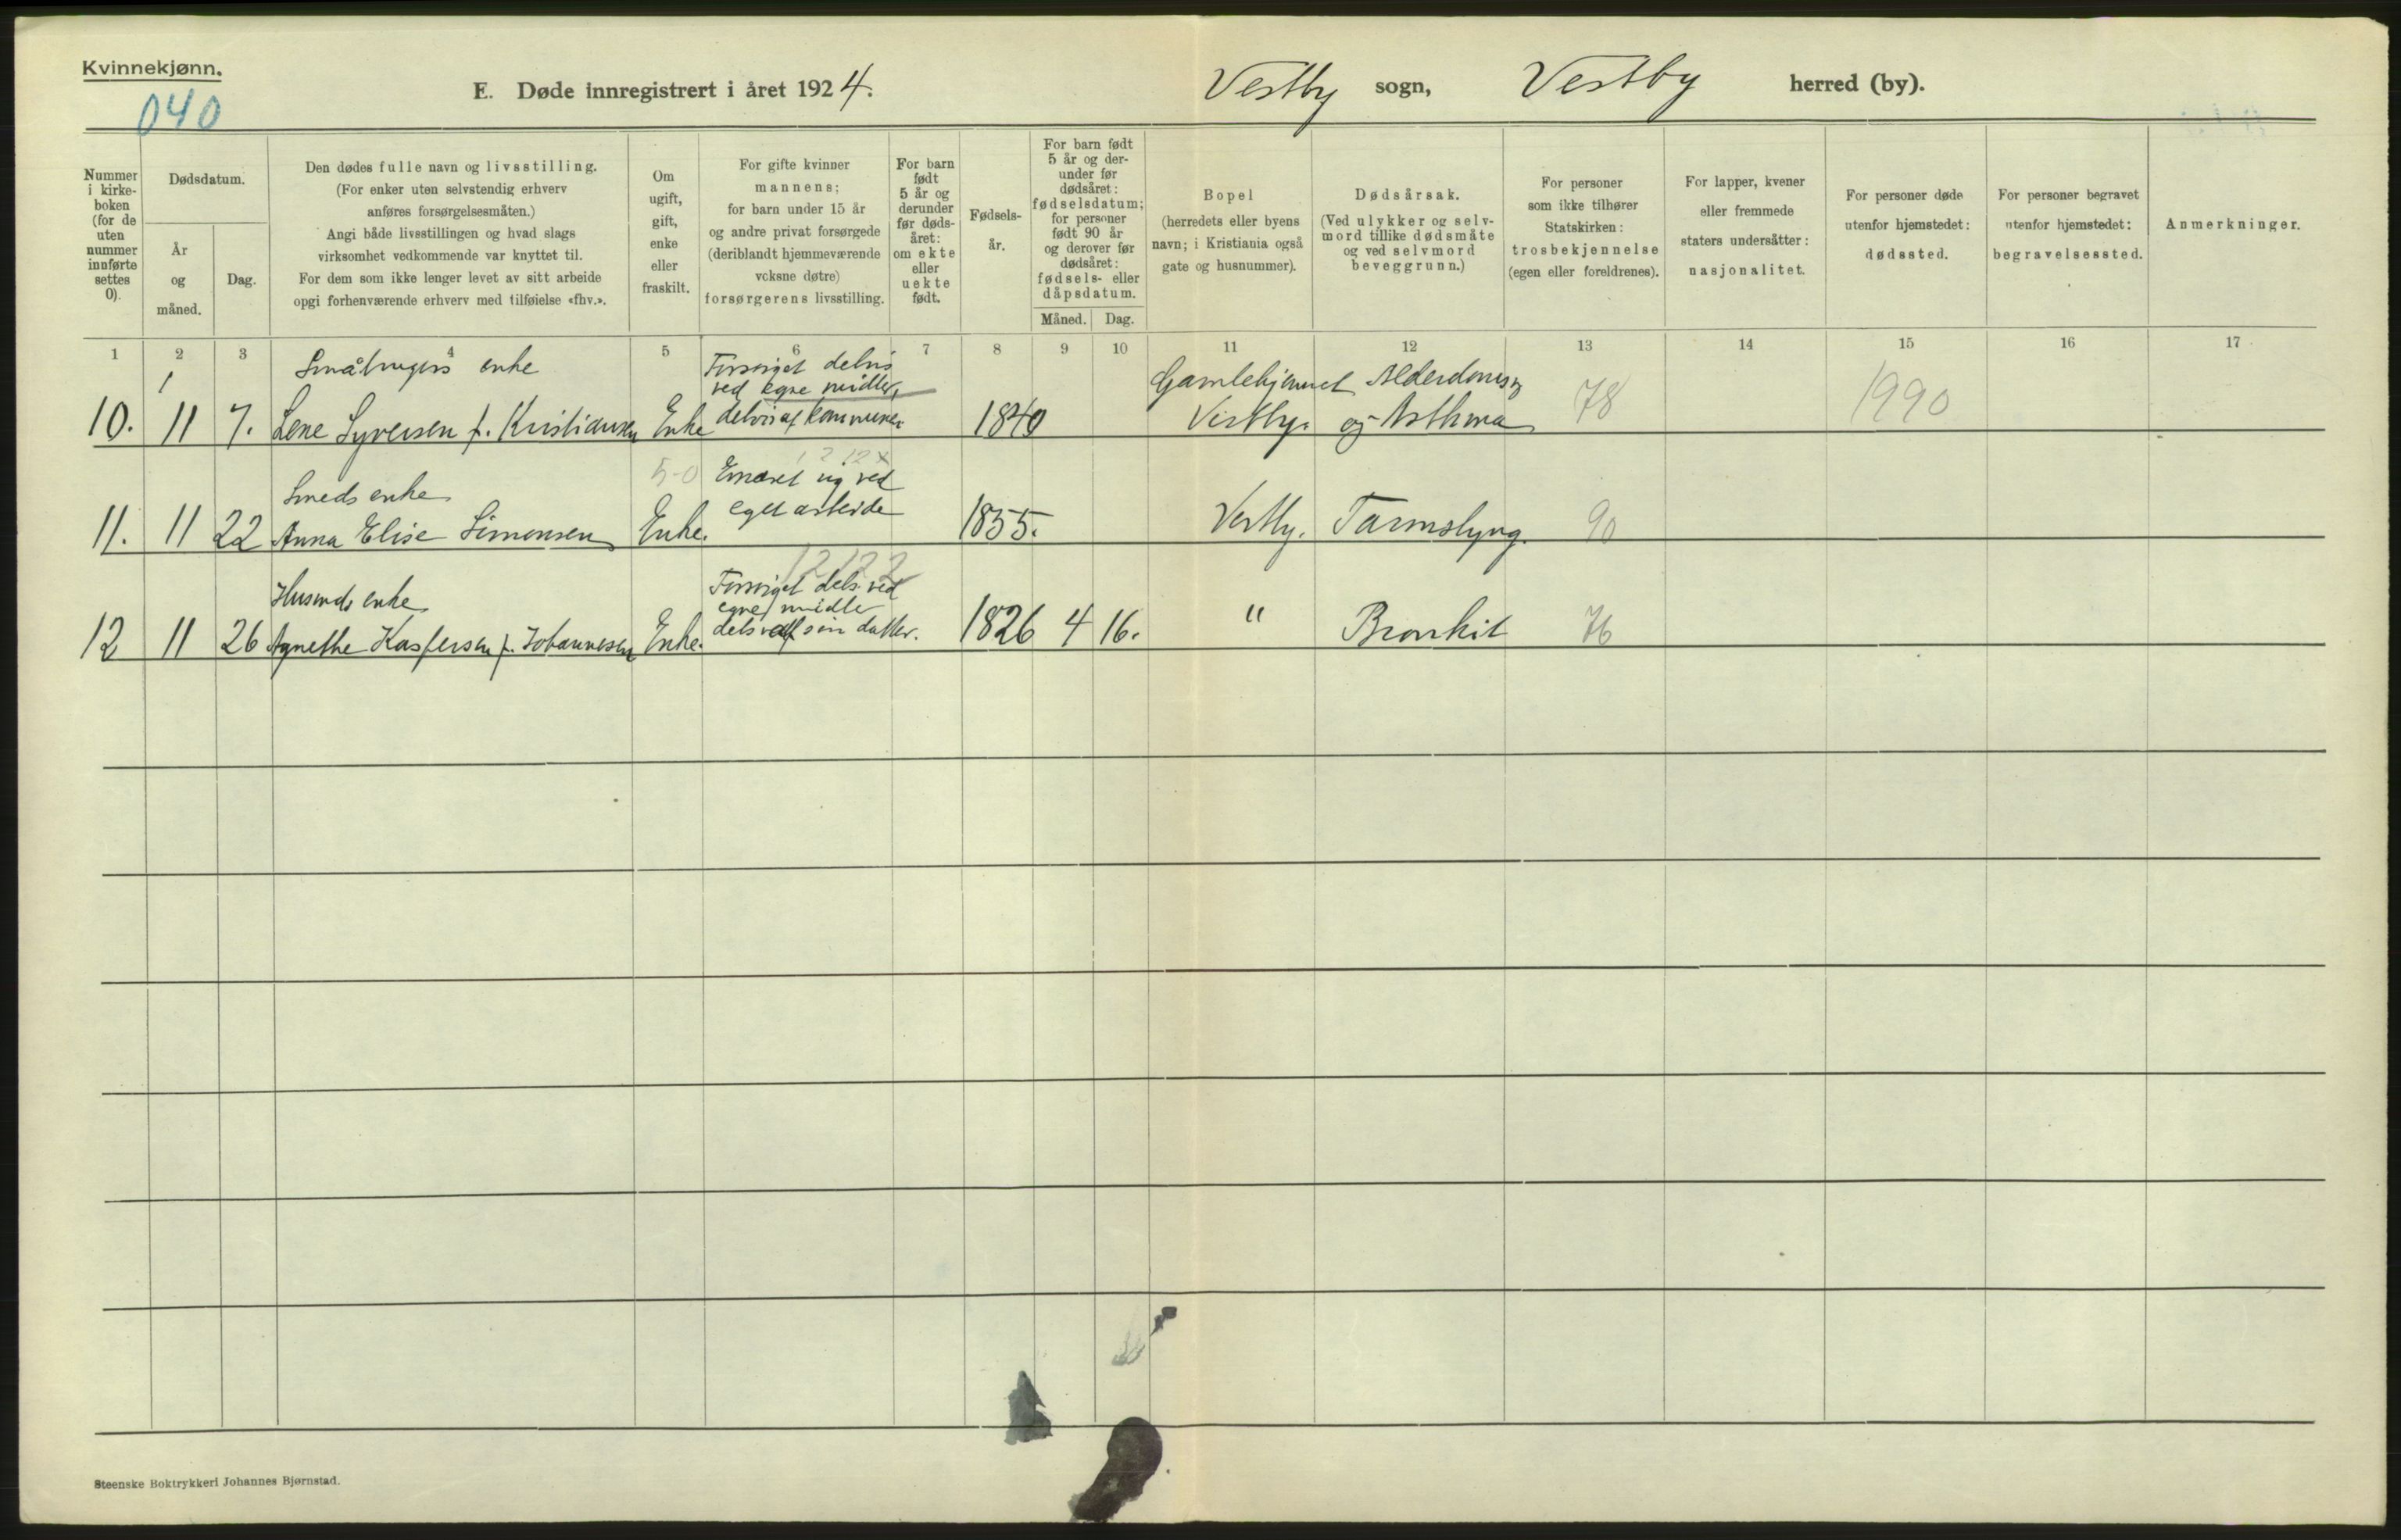 Kvinnekjønn.
040
E. Døde innregistrert i året 1924.
Vestby sogn, Vestby herred (by).
Nummer
i kirke-
boken
(for de
uten
nummer
innførte
settes
0).
Dødsdatum.
År
og
måned.
Dag.
Den dødes fulle navn og livsstilling.
(For enker uten selvstendig erhverv
anføres forsørgelsesmåten.)
Angi både livsstillingen og hvad slags
virksomhet vedkommende var knyttet til.
For dem som ikke lenger levet av sitt arbeide
opgi forhenværende erhverv med tilføielse «fhv.».
Om
ugift,
gift,
enke
eller
fraskilt.
For gifte kvinner
mannens;
for barn under 15 år
og andre privat forsørgede
(deriblandt hjemmeværende
voksne døtre)
forsørgerens livsstilling.
For barn
født
5 år og
derunder
før døds-
året:
om ekte
eller
uekte
født.
Fødsels-
år.
For barn født
5 år og der-
under før
dødsåret:
fødselsdatum;
for personer
født 90 år
og derover før
dødsåret:
fødsels- eller
dåpsdatum.
Måned. Dag.
Bopel
(herredets eller byens
navn; i Kristiania også
gate og husnummer).
Dødsårsak.
(Ved ulykker og selv-
mord tillike dødsmåte
og ved selvmord
beveggrunn.)
For personer
som ikke tilhører
Statskirken:
trosbekjennelse
(egen eller foreldrenes).
For lapper, kvener
eller fremmede
staters undersåtter:
nasjonalitet.
For personer døde
utenfor hjemstedet:
dødssted.
For personer begravet
utenfor hjemstedet:
begravelsessted.
Anmerkninger.
1 2 3 4 5 6 7 8 9 10 11 12 13 14 15 16 17
Småbrugers enke Forsørget delvis
ved egne midler, Gamlehjemmet Alderdomssv
10. 11 7. Lene Syversen f. Kristiansen Enke delvis af kommunen 1840 Vestby. og Asthma 78 1990
5-0 Ernæret sig ved
Smeds enke eget arbeide
11. 11 22 Anna Elise Simonsen Enke. 1855. Vestby. Tarmslyng. 90
12122
Husmds enke Forsørget dels ved
egne midler
12 11 26 Agnethe Kaspersen f. Johannesen Enke. dels af sin datter. 1826 4 16. " Bronkit 76
Steenske Boktrykkeri Johannes Bjørnstad.